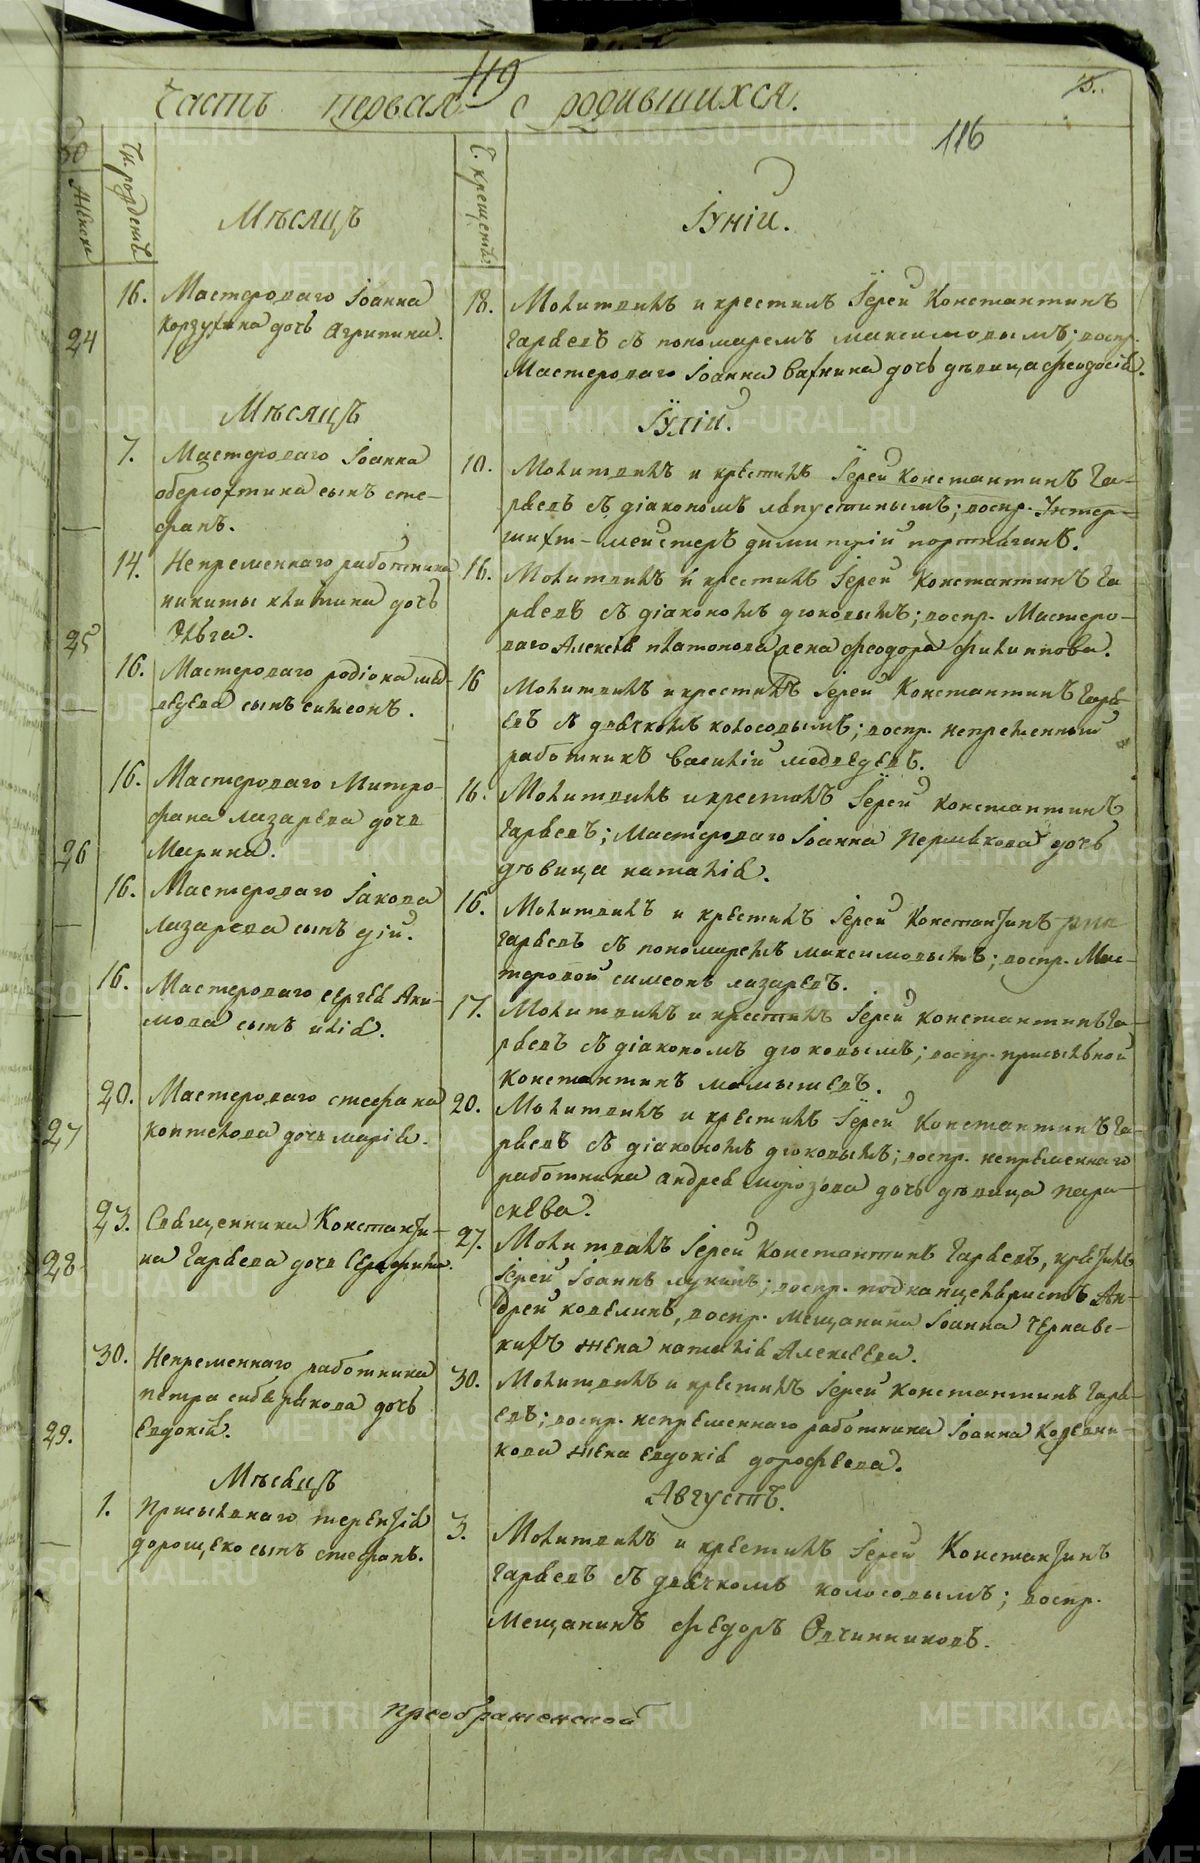 119
Часть первая о родившихся.
15.
116
Чи. рождені
Ч. крещені
Мѣсяцъ
Іуній.
24
16.
Мастероваго Іоанна
Корзухина дочь Агрипина.
18.
Молитвилъ и крестилъ Іерей Константинъ
Гаряевъ съ пономаремъ максимовымъ; воспр.
Мастероваго Іоанна Вахнина дочь дѣвица феодосія.
Мѣсяцъ
Іулій.
7.
Мастероваго Іоанна
оберюхтина сынъ сте-
фанъ.
10.
Молитвилъ и крестилъ Іерей Константинъ Га-
ряевъ съ діакономъ лепустинымъ; воспр. Унтер-
шихт-мейстеръ димитрій портнягинъ.
25
14.
Непременнаго работника
никиты китина дочь
Ольга.
16.
Молитвилъ и крестилъ Іерей Константинъ Га-
ряевъ съ діакономъ дюковымъ; воспр. Мастеро-
ваго Алексія платонова жена феодора филиппова.
16.
Мастероваго родіона мед-
ведева сынъ симеонъ.
16
Молитвилъ и крестилъ Іерей Константинъ Гаря-
евъ съ дьячкомъ колосовымъ; воспр. непременный
работникъ Василій медведевъ.
26
16.
Мастероваго Митро-
фана лазарева дочь
Марина.
16.
Молитвилъ и крестилъ Іерей Константинъ
Гаряевъ; Мастероваго Іоанна Пермякова дочь
дѣвица наталія.
16.
Мастероваго Іакова
лазарева сынъ дій.
16.
Молитвилъ и крестилъ Іерей Константинъ
Гаряевъ съ пономаремъ максимовымъ; воспр. Мас-
теровой симеонъ лазаревъ.
16.
Мастероваго сергея Аки-
мова сынъ илія.
17.
Молитвилъ и крестилъ Іерей Константинъ Га-
ряевъ съ діакономъ дюковымъ; воспр. присыльной
Константинъ мамышевъ.
27
20.
Мастероваго стефана
коптелова дочь марія.
20.
Молитвилъ и крестилъ Іерей Константинъ Га-
ряевъ съ діакономъ дюковымъ; воспр. непременнаго
работника андрея морозова дочь дѣвица пара-
скева.
28
23.
Священника Константи-
на Гаряева дочь Серафима.
27.
Молитвилъ Іерей Константинъ Гаряевъ, крестилъ
Іерей Іоаннъ лукинъ; воспр. подканцеляристъ Ан-
дрей ковелинъ, воспр. мещанина Іоанна чернавс-
кихъ жена наталія Алексеева.
29.
30.
Непременнаго работника
петра сибирякова дочь
Евдокія.
30.
Молитвилъ и крестилъ Іерей Константинъ Гаря-
евъ; воспр. непременнаго работника Іоанна Кожевни-
кова жена евдокія дорофеева.
Мѣсяцъ
Августъ.
1.
Присыльнаго терентія
дорощеко сынъ стефанъ.
3.
Молитвилъ и крестилъ Іерей Константинъ
Гаряевъ съ дьячкомъ колосовымъ; воспр.
Мещанинъ федоръ Овчинниковъ.
преображенской